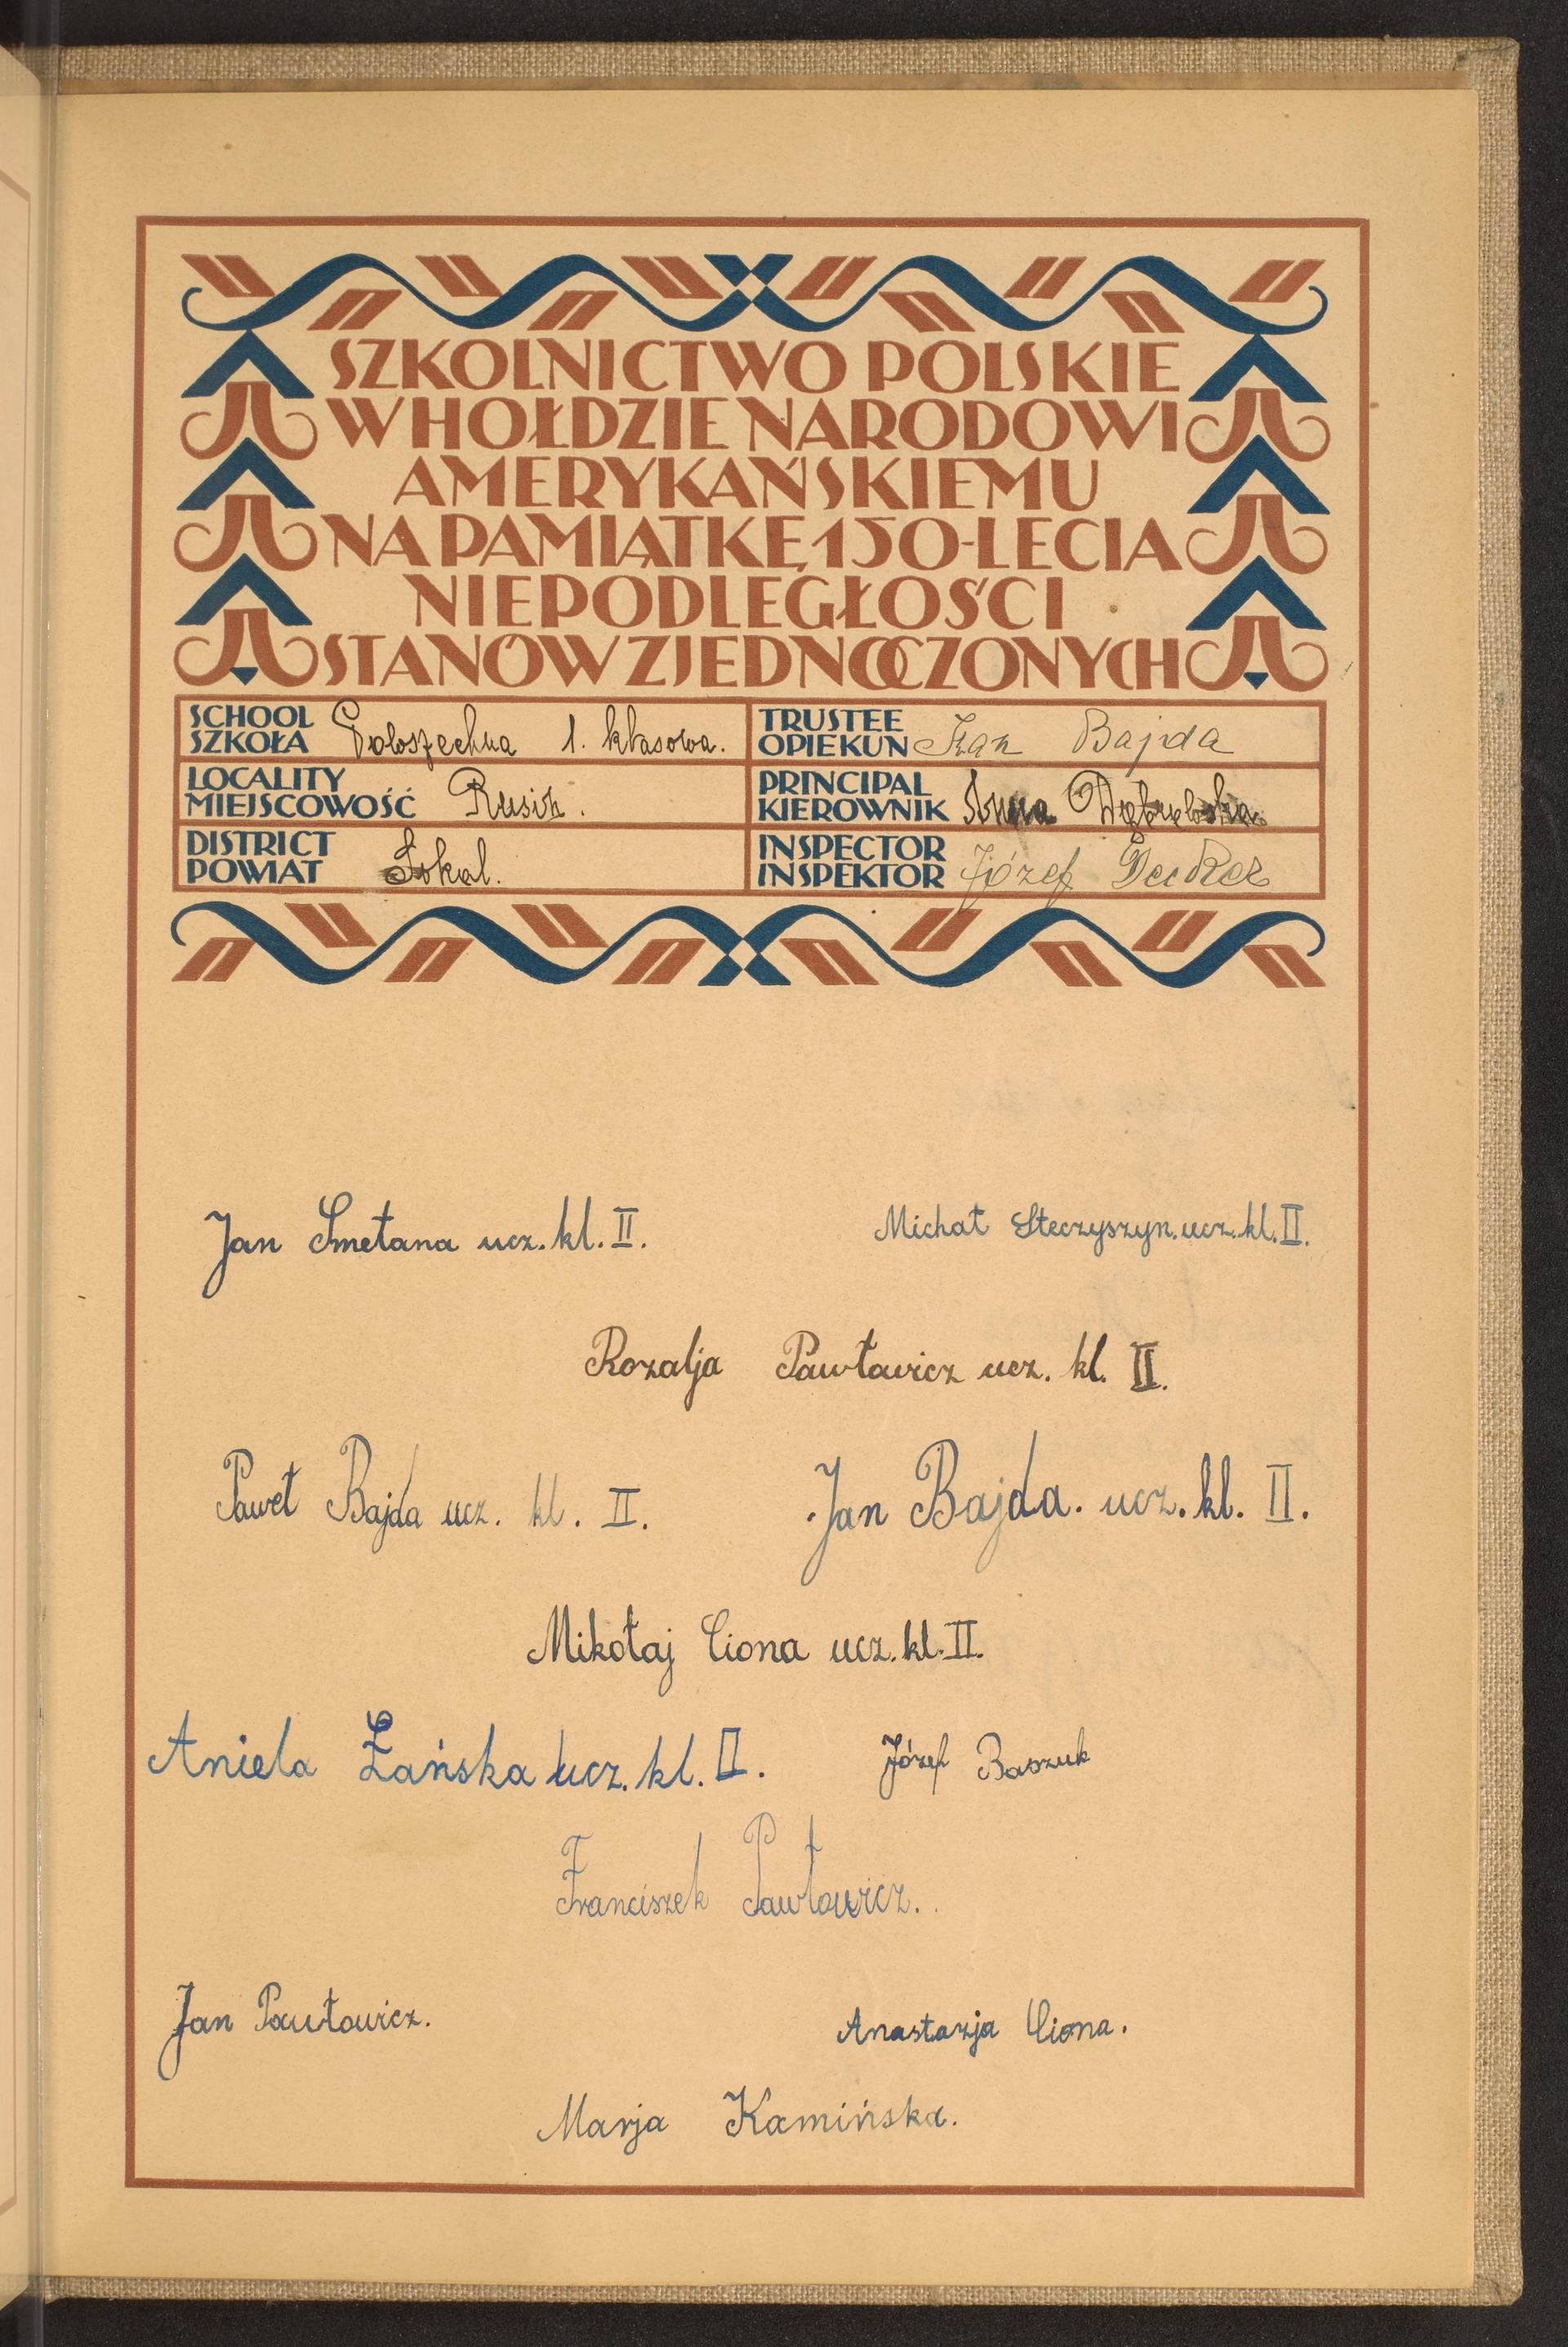 SZKOLNICTWO POLSKIE
W HOŁDZIE NARODOWI
AMERYKAŃSKIEMU
NA PAMIĄTKĘ 150-LECIA
NIEPODLEGŁOŚCI
STANÓW ZJEDNOCZONYCH
SCHOOL
SZKOŁA Powszechna 1. klasowa.
TRUSTEE
OPIEKUN Bajda
LOCALITY
MIEJSCOWOŚĆ Rusin.
PRINCIPAL
KIEROWNIK Anna
DISTRICT
POWIAT Sokal.
INSPECTOR
INSPEKTOR Józef Decker
Jan Smetana ucz. kl. II.
Michał Steczyszyn. ucz. kl. II.
Rozalja Pawłowicz ucz. kl. II.
Paweł Bajda ucz. kl. II.
Jan Bajda. ucz. kl. II.
Mikołaj Ciona ucz. kl. II.
Aniela Łańska ucz. kl. II.
Józef Baszuk
Franciszek Pawłowicz.
Jan Pawłowicz.
Anastazja Ciona.
Marja Kamińska.